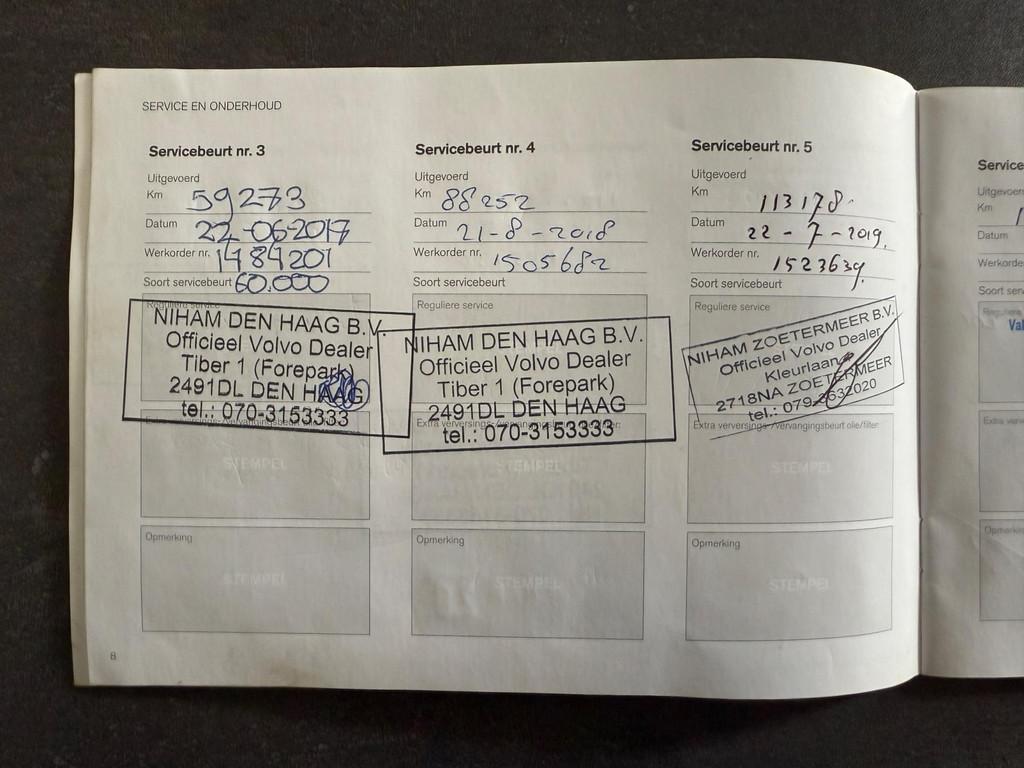 SERVICE EN ONDERHOUD
Servicebeurt nr. 3
Uitgevoerd
Km 59273
Datum 22-06-2017
Werkorder nr. 1484201
Soort servicebeurt 60.000
Reguliere service
NIHAM DEN HAAG B.V.
Officieel Volvo Dealer
Tiber 1 (Forepark)
2491DL DEN HAAG
tel.: 070-3153333
Extra verversings-/vervangingsbeurt olie/filter:
STEMPEL
Opmerking
STEMPEL
8
Servicebeurt nr. 4
Uitgevoerd
Km 88252
Datum 21-8-2018
Werkorder nr. 1505682
Soort servicebeurt
Reguliere service
NIHAM DEN HAAG B.V.
Officieel Volvo Dealer
Tiber 1 (Forepark)
2491DL DEN HAAG
tel.: 070-3153333
Extra verversings-/vervangingsbeurt olie/filter:
STEMPEL
Opmerking
STEMPEL
Servicebeurt nr. 5
Uitgevoerd
Km 113178
Datum 22-7-2019
Werkorder nr. 1523639
Soort servicebeurt
Reguliere service
NIHAM ZOETERMEER B.V.
Officieel Volvo Dealer
Kleurlaan
2718NA ZOETERMEER
tel.: 079-3632020
Extra verversings-/vervangingsbeurt olie/filter:
STEMPEL
Opmerking
STEMPEL
Service
Uitgevoerd
Km
Datum
Werkorde
Soort serv